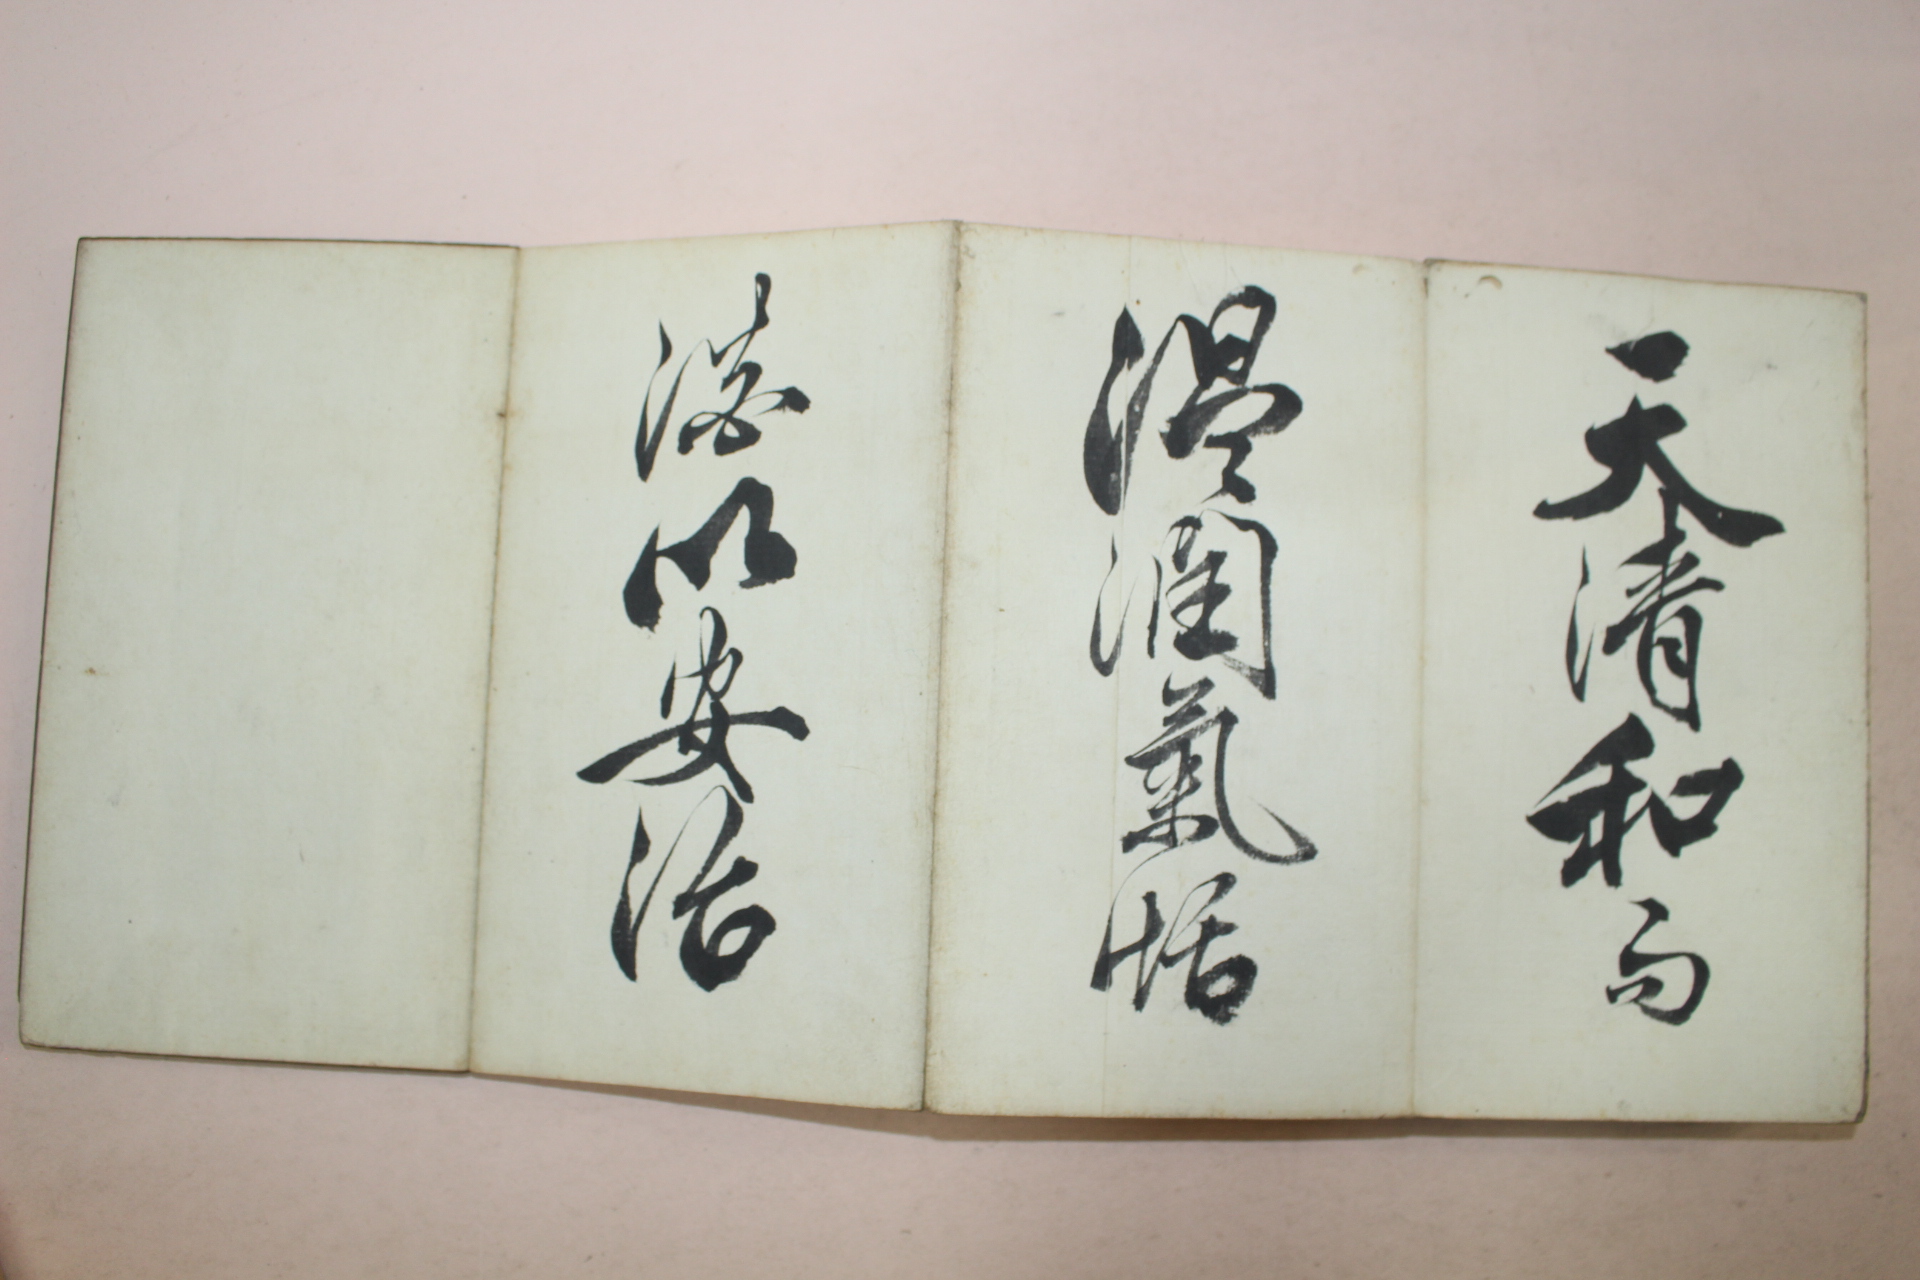 天清和而
温潤氣恬
澹以安治